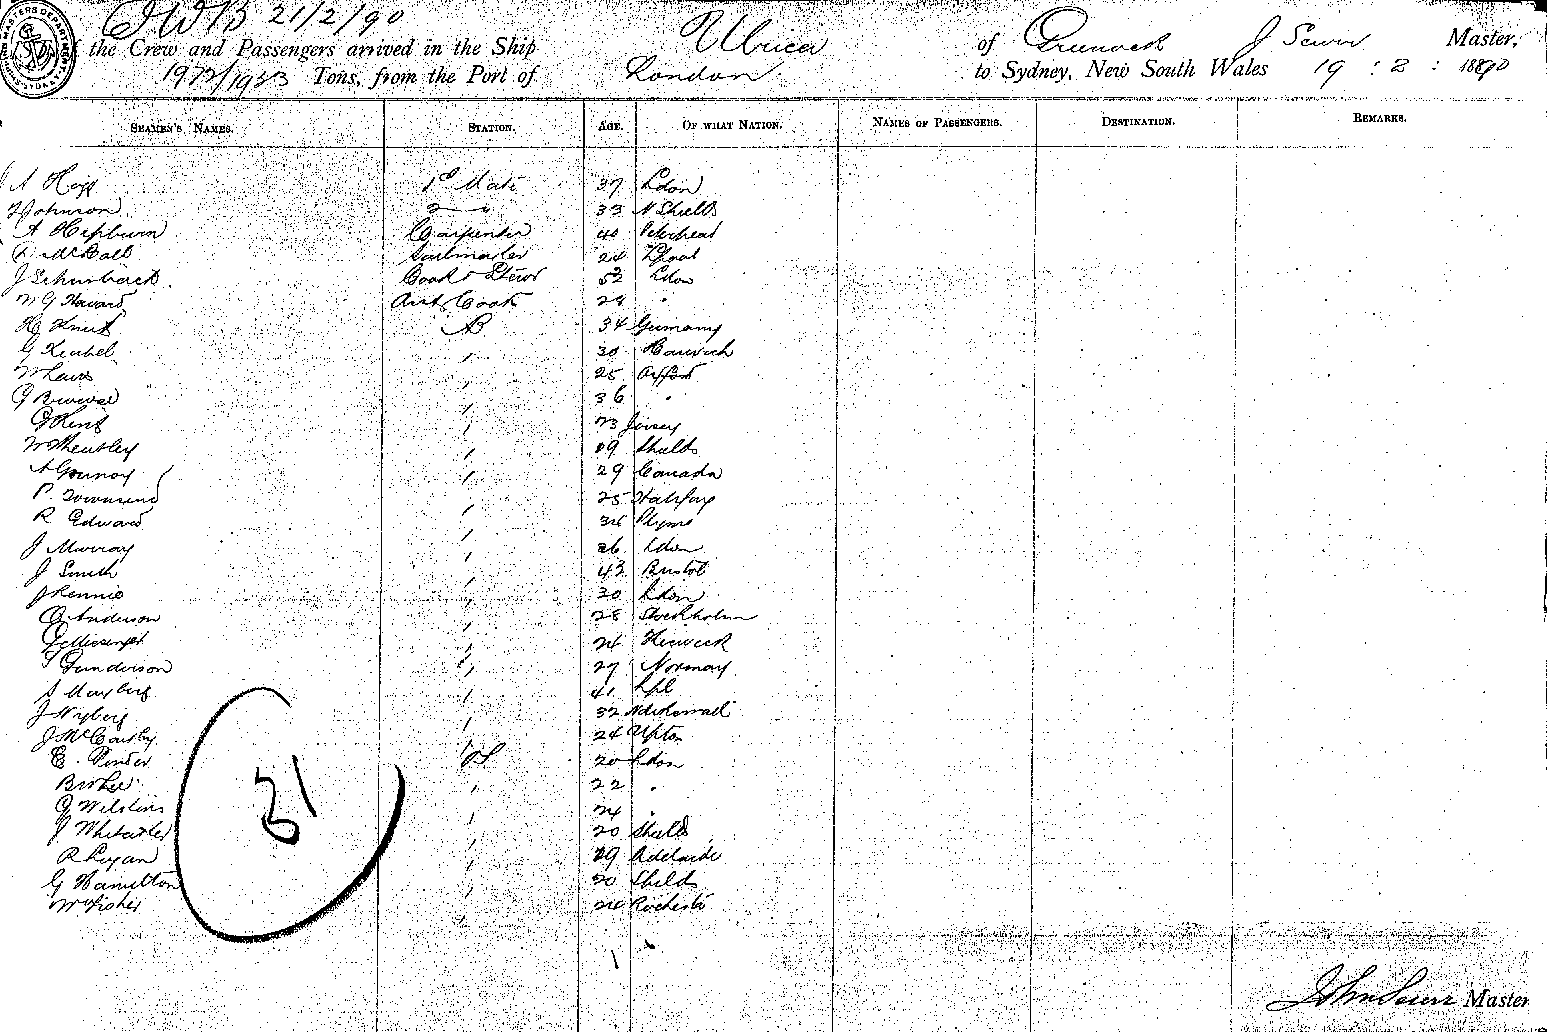 JWB 21/2/90
the Crew and Passengers arrived in the Ship Ulrica of Greenock J Sewer Master,
Tons, from the Port of London to Sydney, New South Wales 19 : 2 : 1890
SEAMEN'S NAMES. STATION. AGE. OF WHAT NATION. NAMES OF PASSENGERS. DESTINATION. REMARKS.
1st Mate 37 Ldon
Johnson 2 " 33 N Shields
A Hepburn Carpenter 40 Peterhead
D McCall Sailmaker 24 Lpool
J Schurback Cook & Stewd 52 Ldon
W G Howard Asst Cook 24 "
H Knut AB 34 Germany
G Keubel " 30 Harwich
W Laws " 25 Orford
36 "
G Kent " 23 Jersey
W Wheatley " 19 Shields
" 29 Canada
P. Townsend " 25 Halifax
R Edward " 34 Plym
J Murray " 26 Ldon
J Smith " 43 Bristol
J Rennie " 30 Ldon
C Anderson " 28 Stockholm
G Messenger " 24
T Gunderson " 27 Norway
" 41 Lpl
J Nyberg " 32
J McCarthy " 24 Upton
E. Pinder OS 20 Ldon
" 22 "
" 24 "
J Wheatley " 20 Shields
R Logan " 29 Adelaide
G Hamilton " 20 Shields
W Fisher " 24 Rochester
31
John Sewer Master